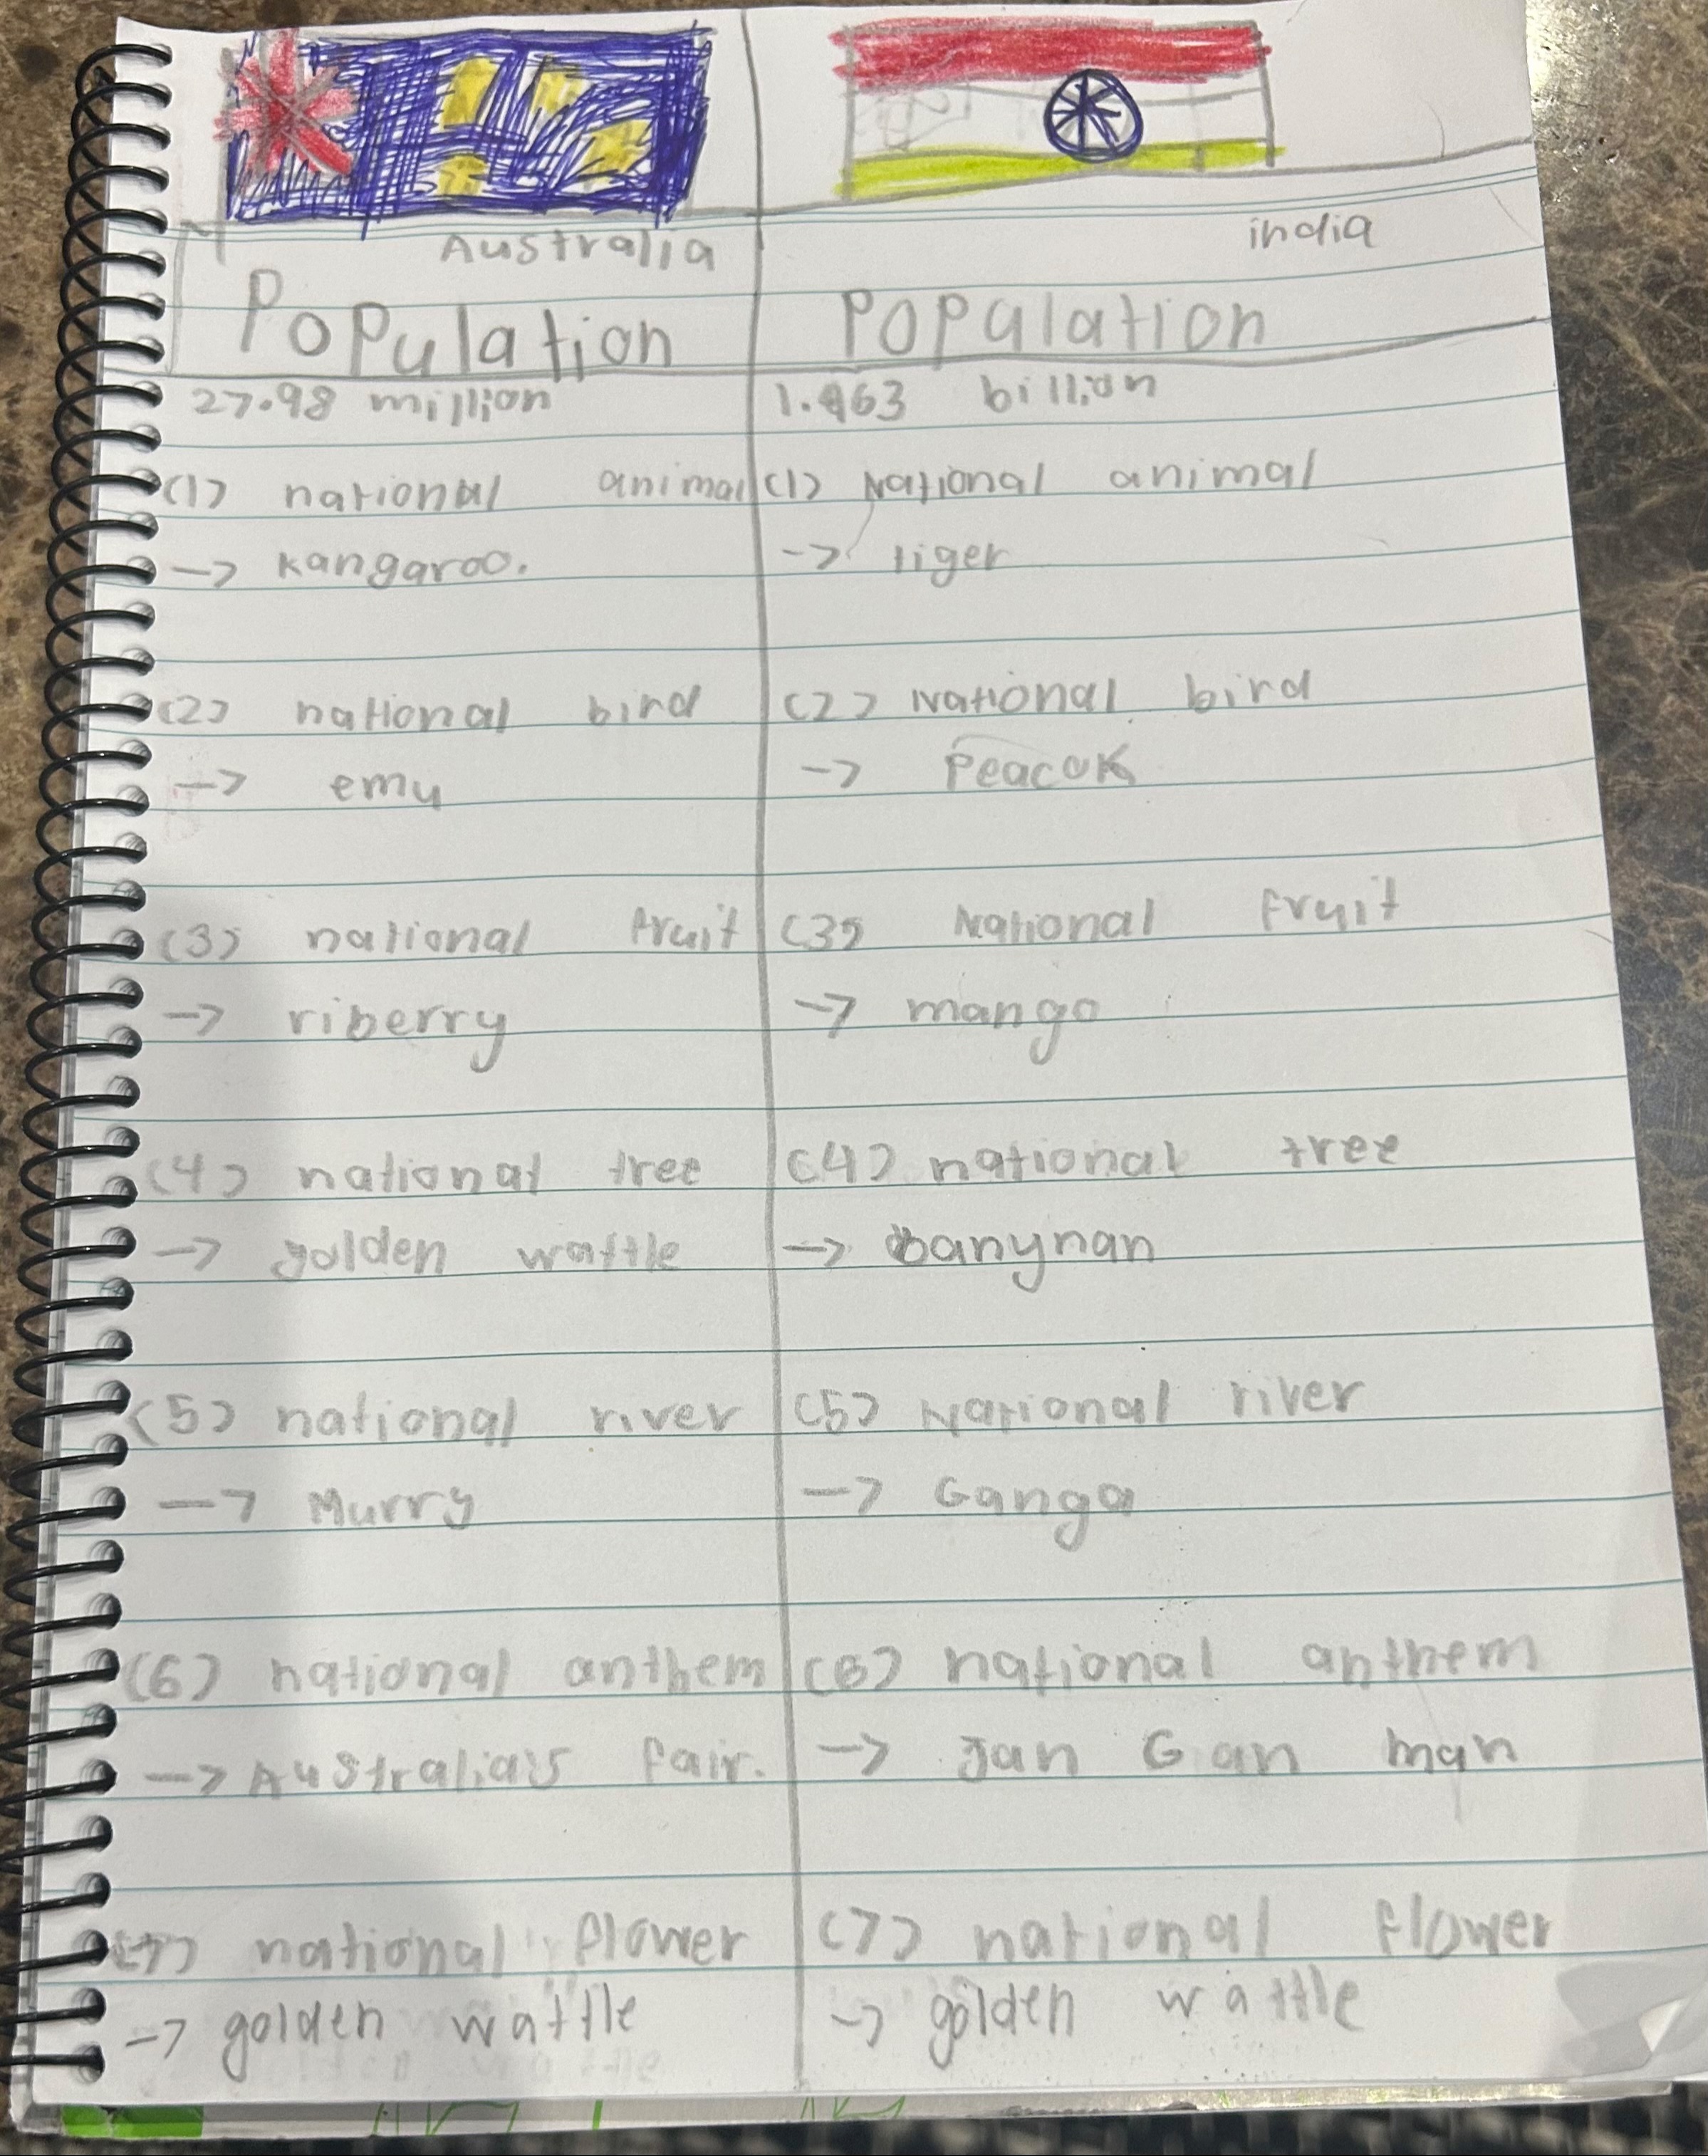 Australia
india
Population
Popalation
27.98 million
1.463 billion
(1) national animal
(1) National animal
-> kangaroo.
-> tiger
(2) national bird
(2) National bird
-> emu
-> Peacok
(3) national fruit
(3) National fruit
-> riberry
-> mango
(4) national tree
(4) national tree
-> golden wattle
-> banynan
(5) national river
(5) National river
-> Murry
-> Ganga
(6) national anthem
(6) national anthem
-> Australiais fair.
-> Jan Gan man
(7) national flower
(7) national flower
-> golden wattle
-> golden wattle